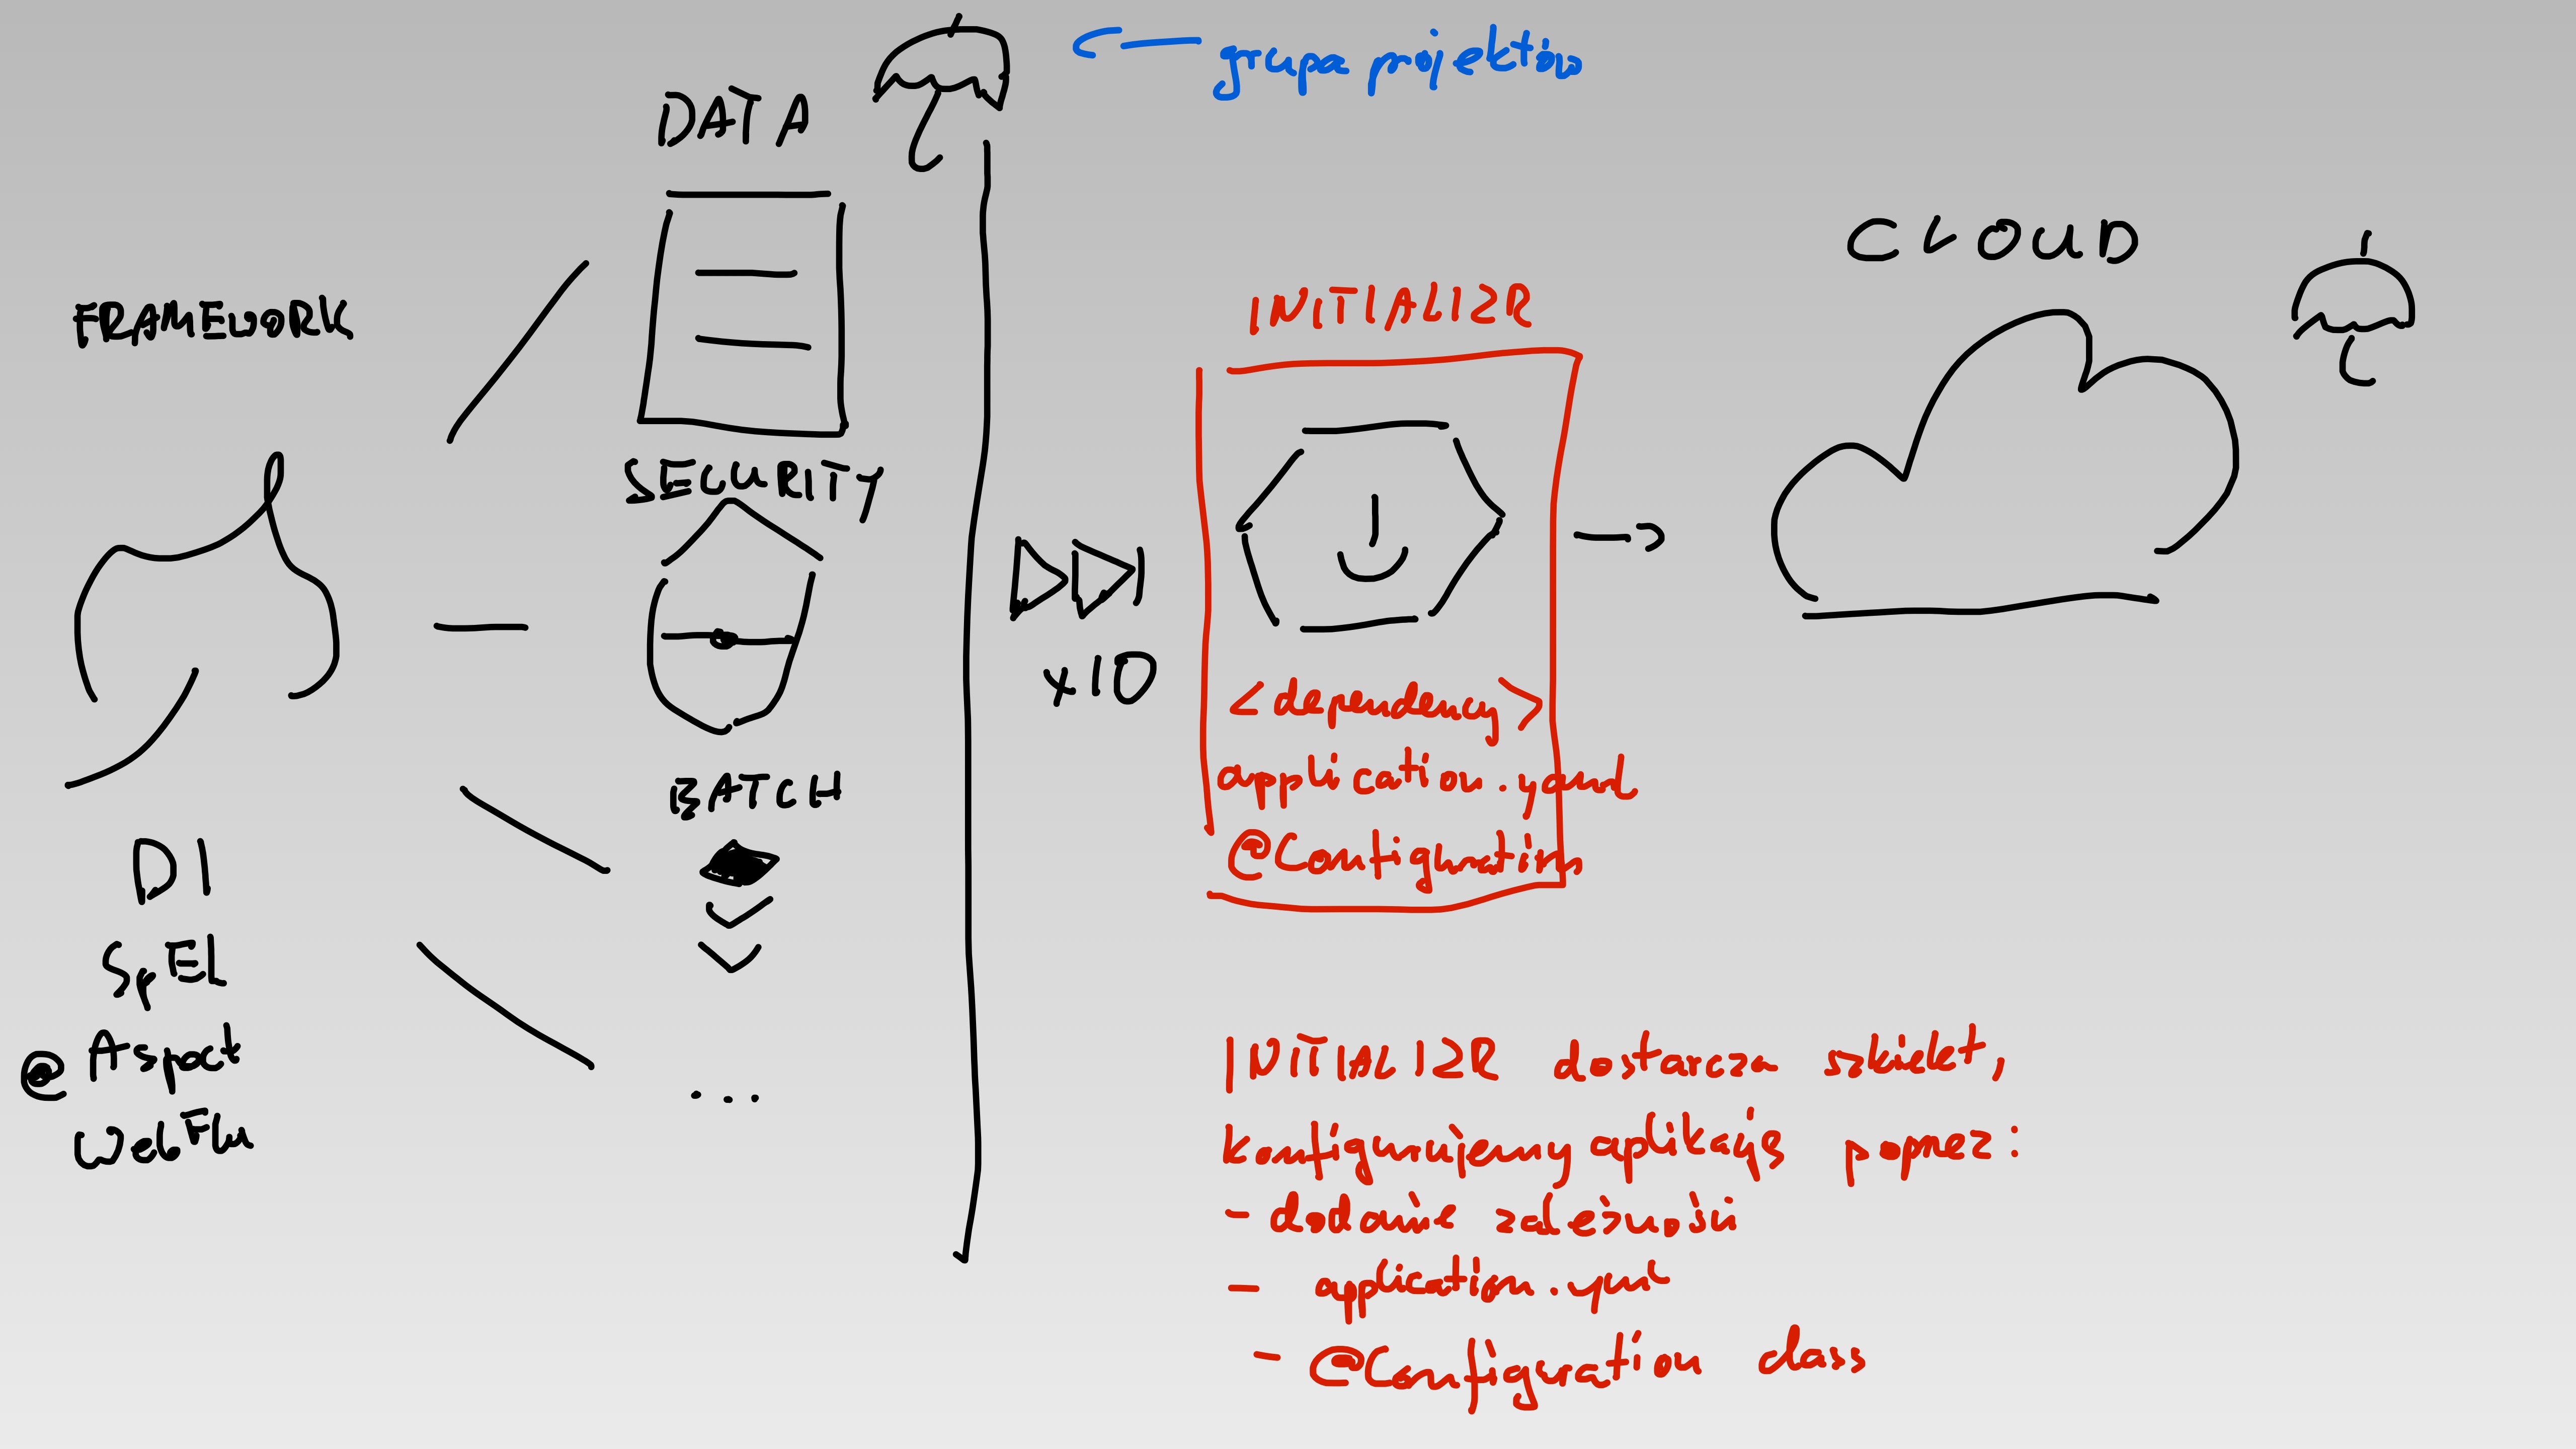 grupa projektów
DATA
FRAMEWORK
SECURITY
BATCH
...
DI
SpEL
@Aspect
WebFlu
x10
INITIALIZR
<dependency>
application.yaml
@Configuration
CLOUD
INITIALIZR dostarcza szkielet,
konfigurujemy aplikację poprzez:
- dodanie zależności
- application.yml
- @Configuration class